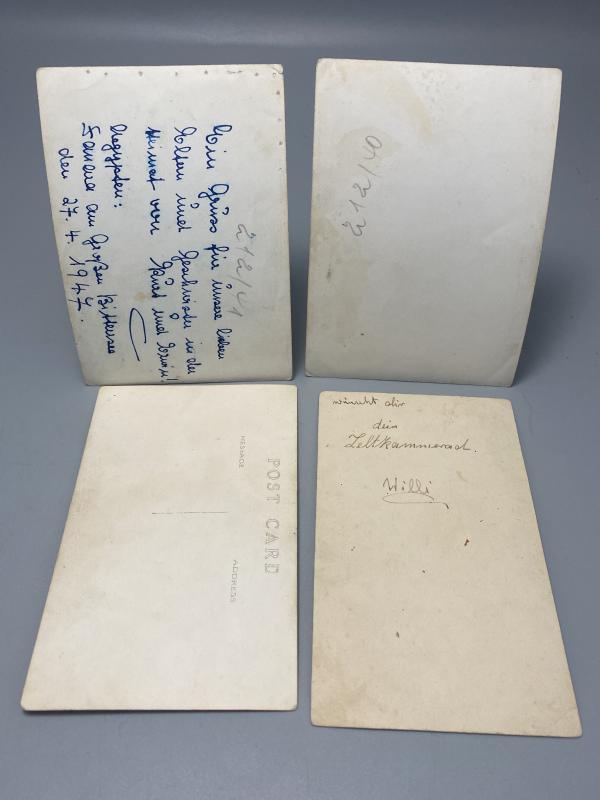 Ein Gruss für unsere lieben
Eltern und Geschwister in der
Heimat von Kurt und Erwin!
Aegypten:
Fanara am Großen Bittersee
den 27. 4. 1947.
212/41
212/40
POST CARD
MESSAGE
ADDRESS
wünscht dir
dein
Zeltkammerad.
Willi